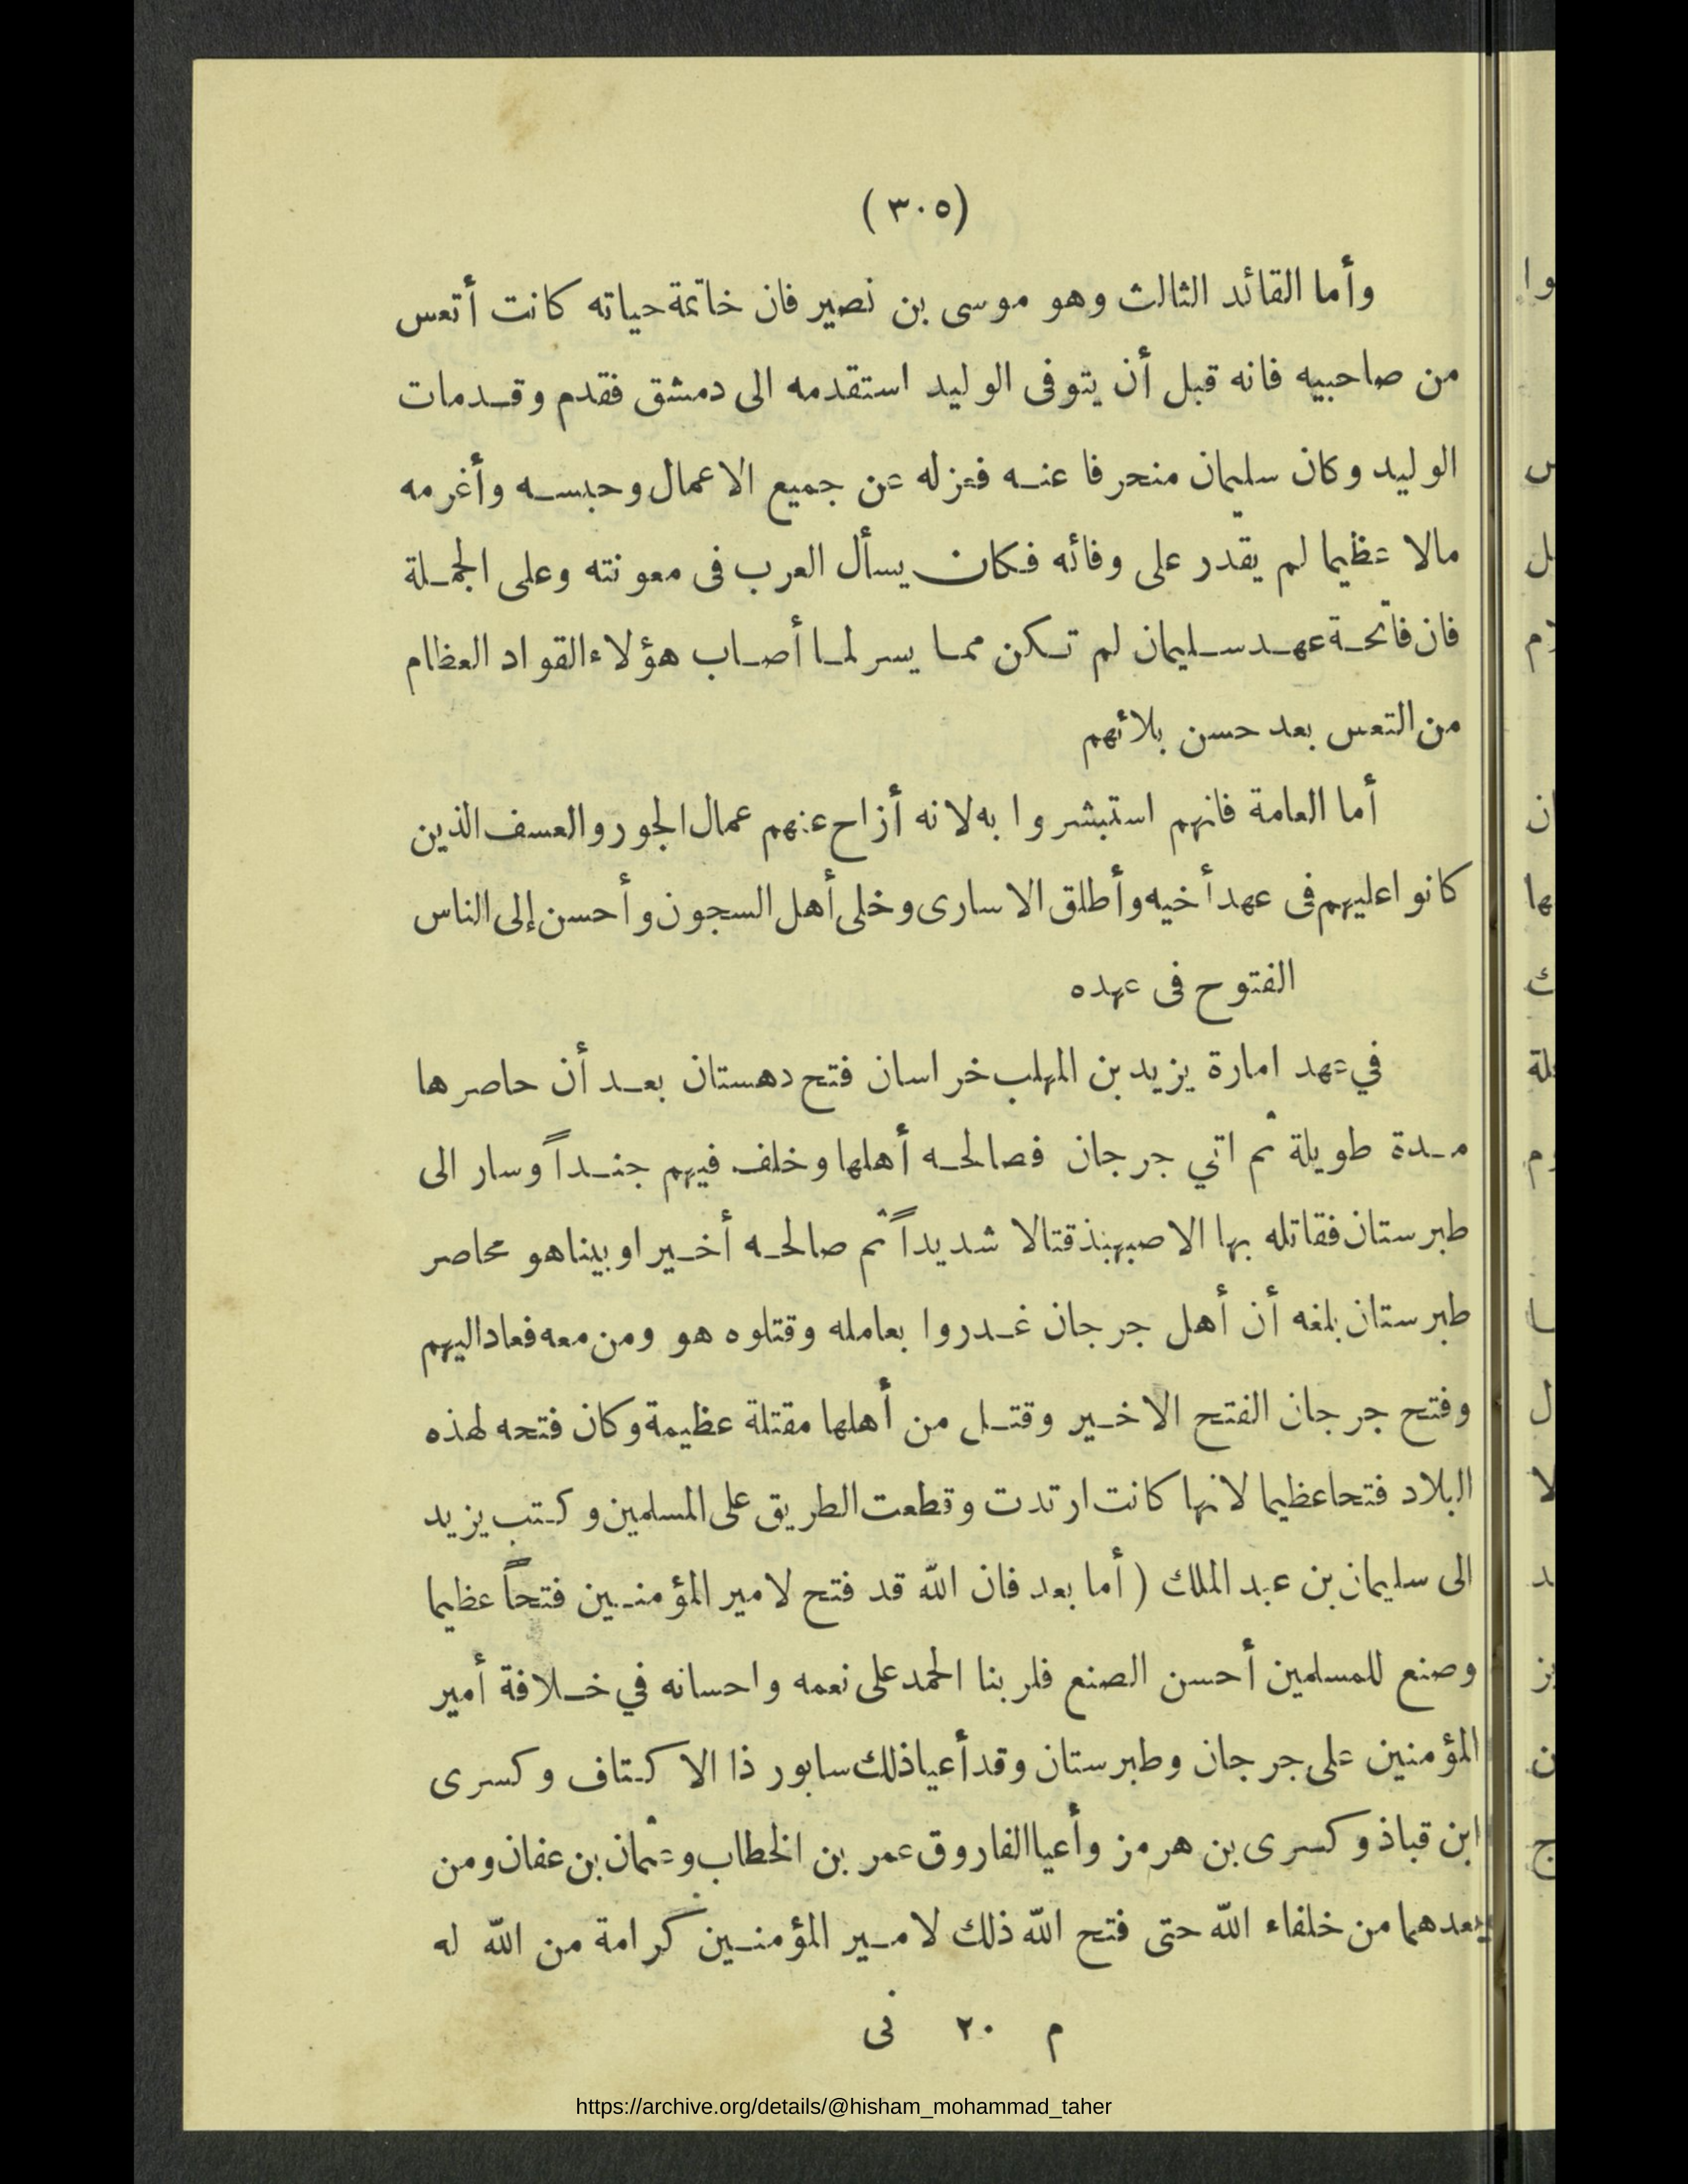 (٣٠٥)
وأما القائد الثالث وهو موسى بن نصير فان خاتمة حياته كانت أتعس
من صاحبيه فانه قبل أن يتوفى الوليد استقدمه الى دمشق فقدم وقد مات
الوليد وكان سليمان منحرفا عنه فعزله عن جميع الاعمال وحبسه وأغرمه
مالا عظيما لم يقدر على وفائه فكان يسأل العرب فى معونته وعلى الجملة
فان فاتحة عهد سليمان لم تكن مما يسر لما أصاب هؤلاء القواد العظام
من التعس بعد حسن بلائهم
أما العامة فانهم استبشروا به لانه أزاح عنهم عمال الجور والعسف الذين
كانوا عليهم فى عهد أخيه وأطلق الاسارى وخلى أهل السجون وأحسن إلى الناس
الفتوح فى عهده
في عهد امارة يزيد بن المهلب خراسان فتح دهستان بعد أن حاصرها
مدة طويلة ثم اتي جرجان فصالحه أهلها وخلف فيهم جنداً وسار الى
طبرستان فقاتله بها الاصبهبذ قتالا شديداً ثم صالحه أخيرا وبيناهو محاصر
طبرستان بلغه أن أهل جرجان غدروا بعامله وقتلوه هو ومن معه فعاد اليهم
وفتح جرجان الفتح الاخير وقتل من أهلها مقتلة عظيمة وكان فتحه لهذه
البلاد فتحا عظيما لانها كانت ارتدت وقطعت الطريق على المسلمين وكتب يزيد
الى سليمان بن عبد الملك (أما بعد فان الله قد فتح لامير المؤمنين فتحاً عظيما
وصنع للمسلمين أحسن الصنع فلربنا الحمد على نعمه واحسانه في خلافة أمير
المؤمنين على جرجان وطبرستان وقد أعيا ذلك سابور ذا الاكتاف وكسرى
ابن قباذ وكسرى بن هرمز وأعيا الفاروق عمر بن الخطاب وعثمان بن عفان ومن
بعدهما من خلفاء الله حتى فتح الله ذلك لامير المؤمنين كرامة من الله له
م ٢٠ نى
https://archive.org/details/@hisham_mohammad_taher